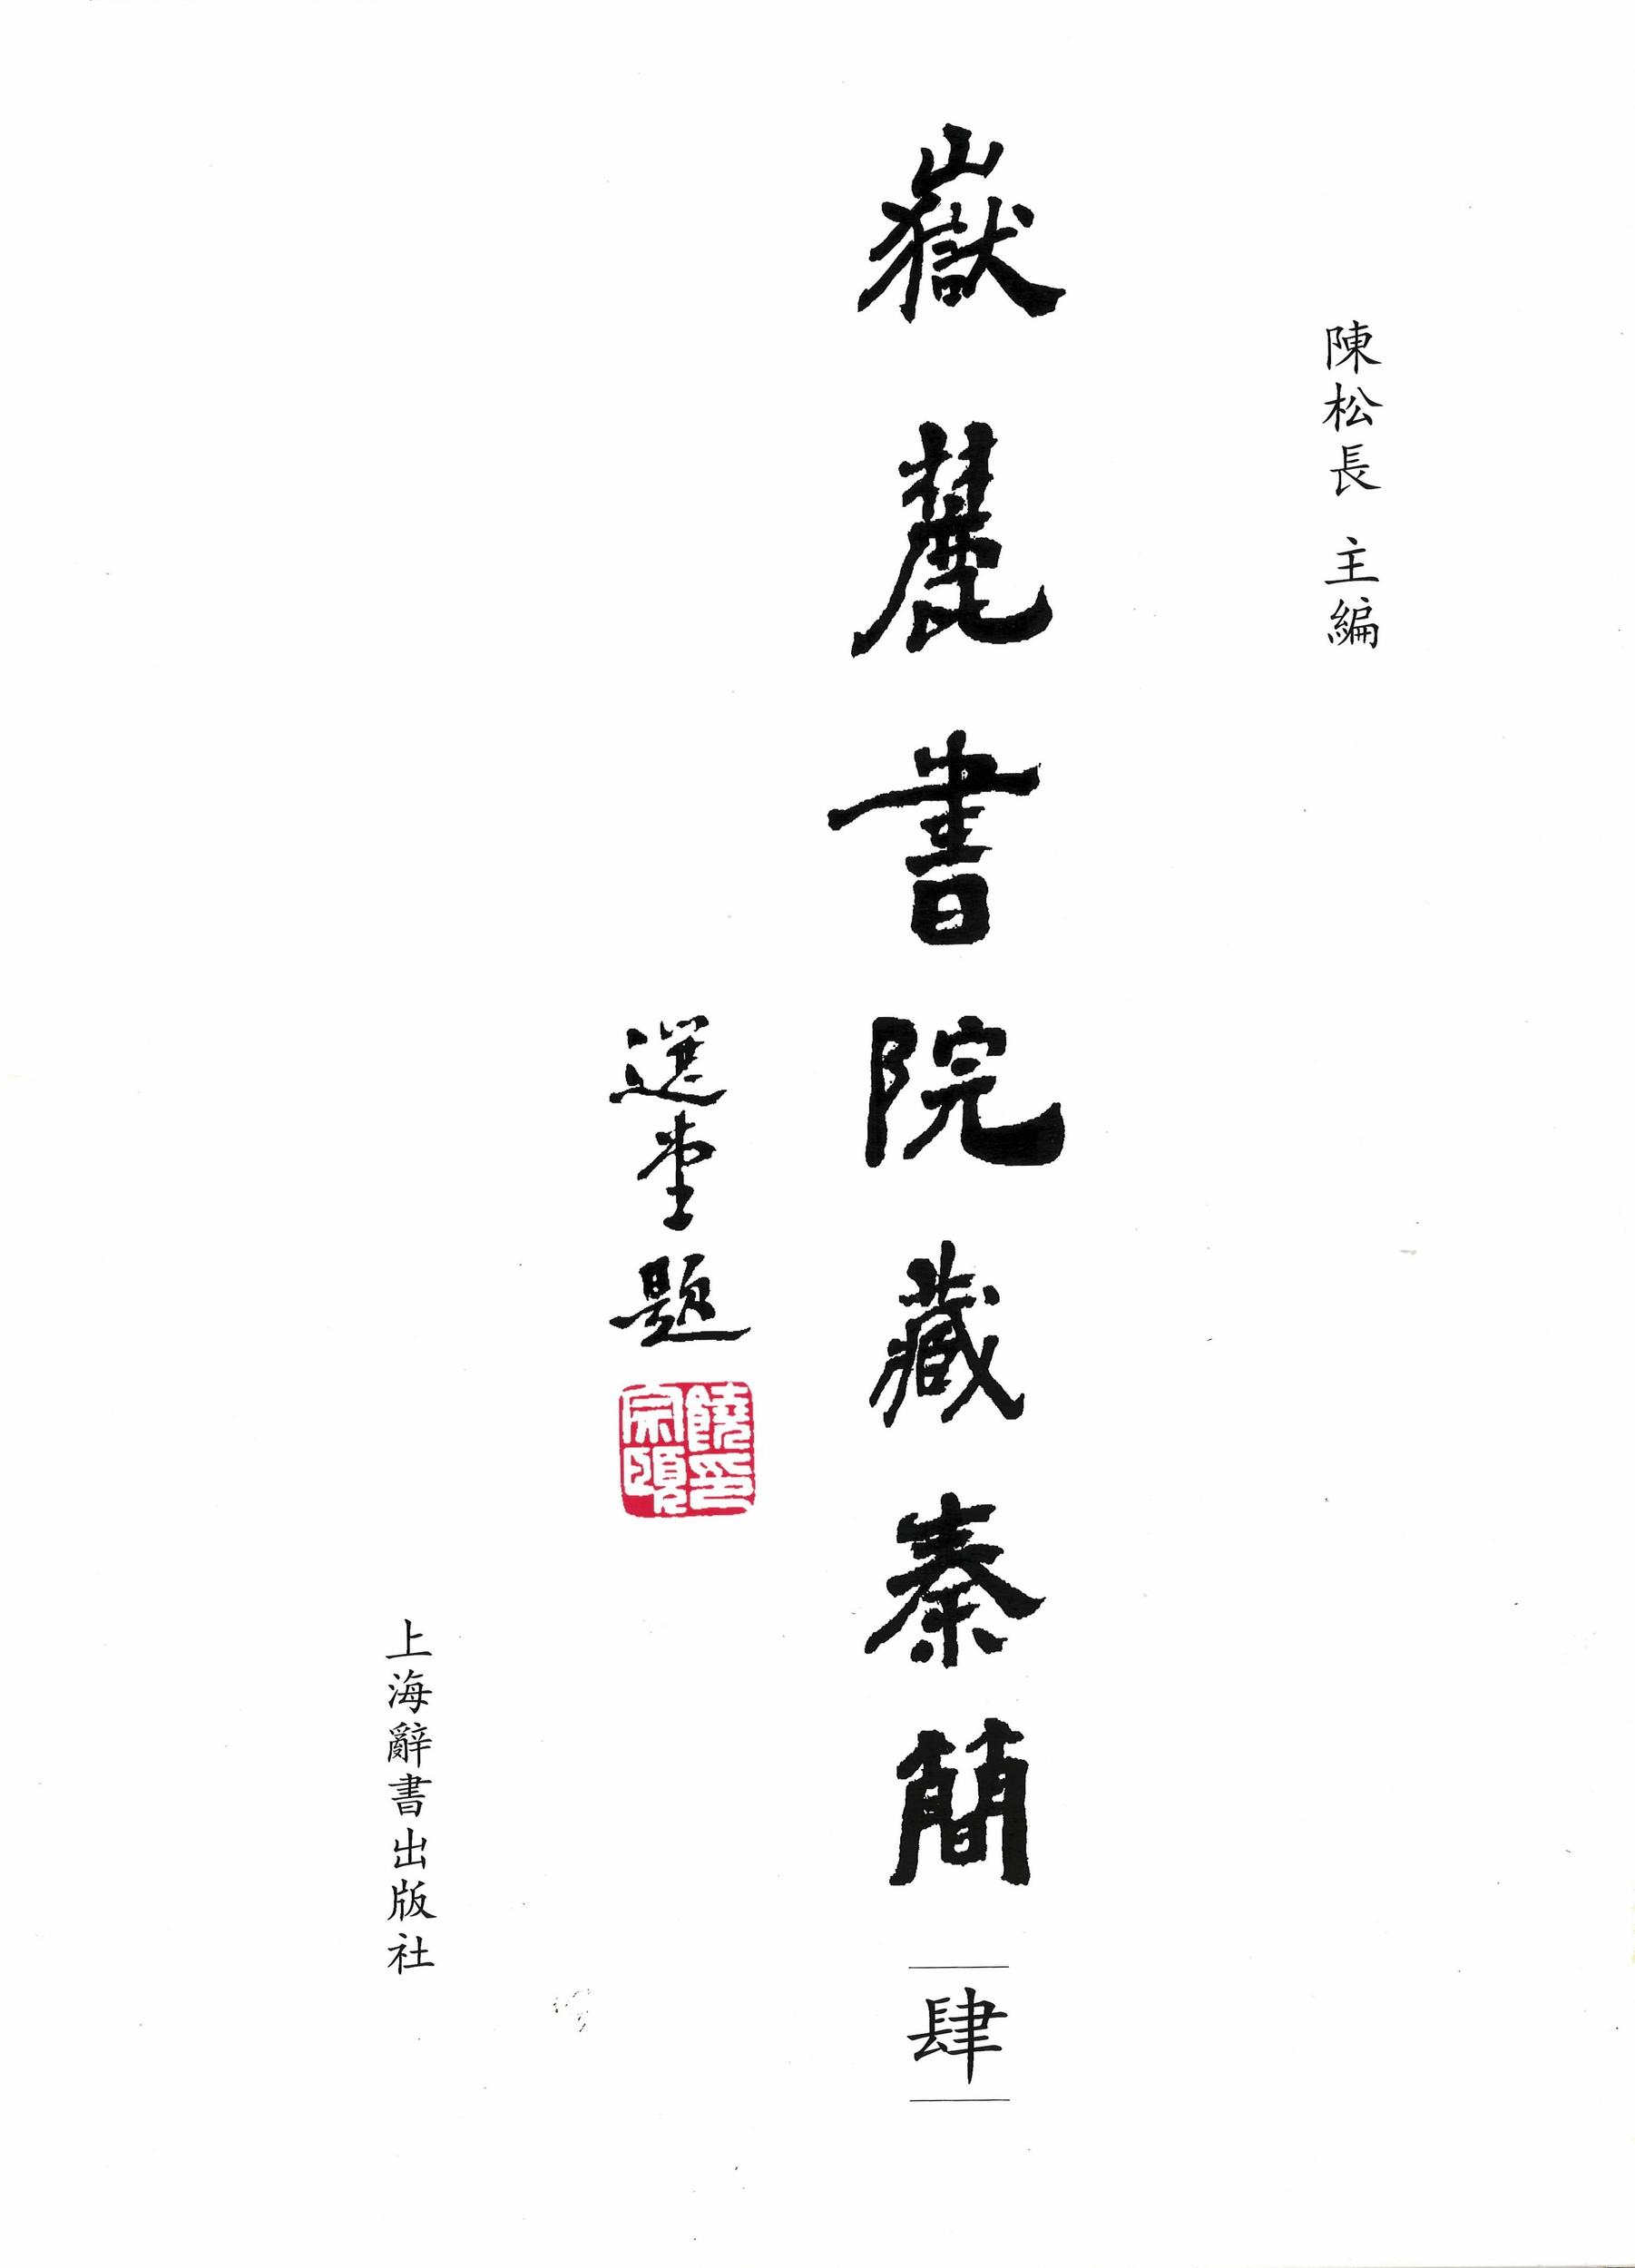 陳松長 主編
嶽麓書院藏秦簡
肆
選堂題
饒宗頤印
上海辭書出版社